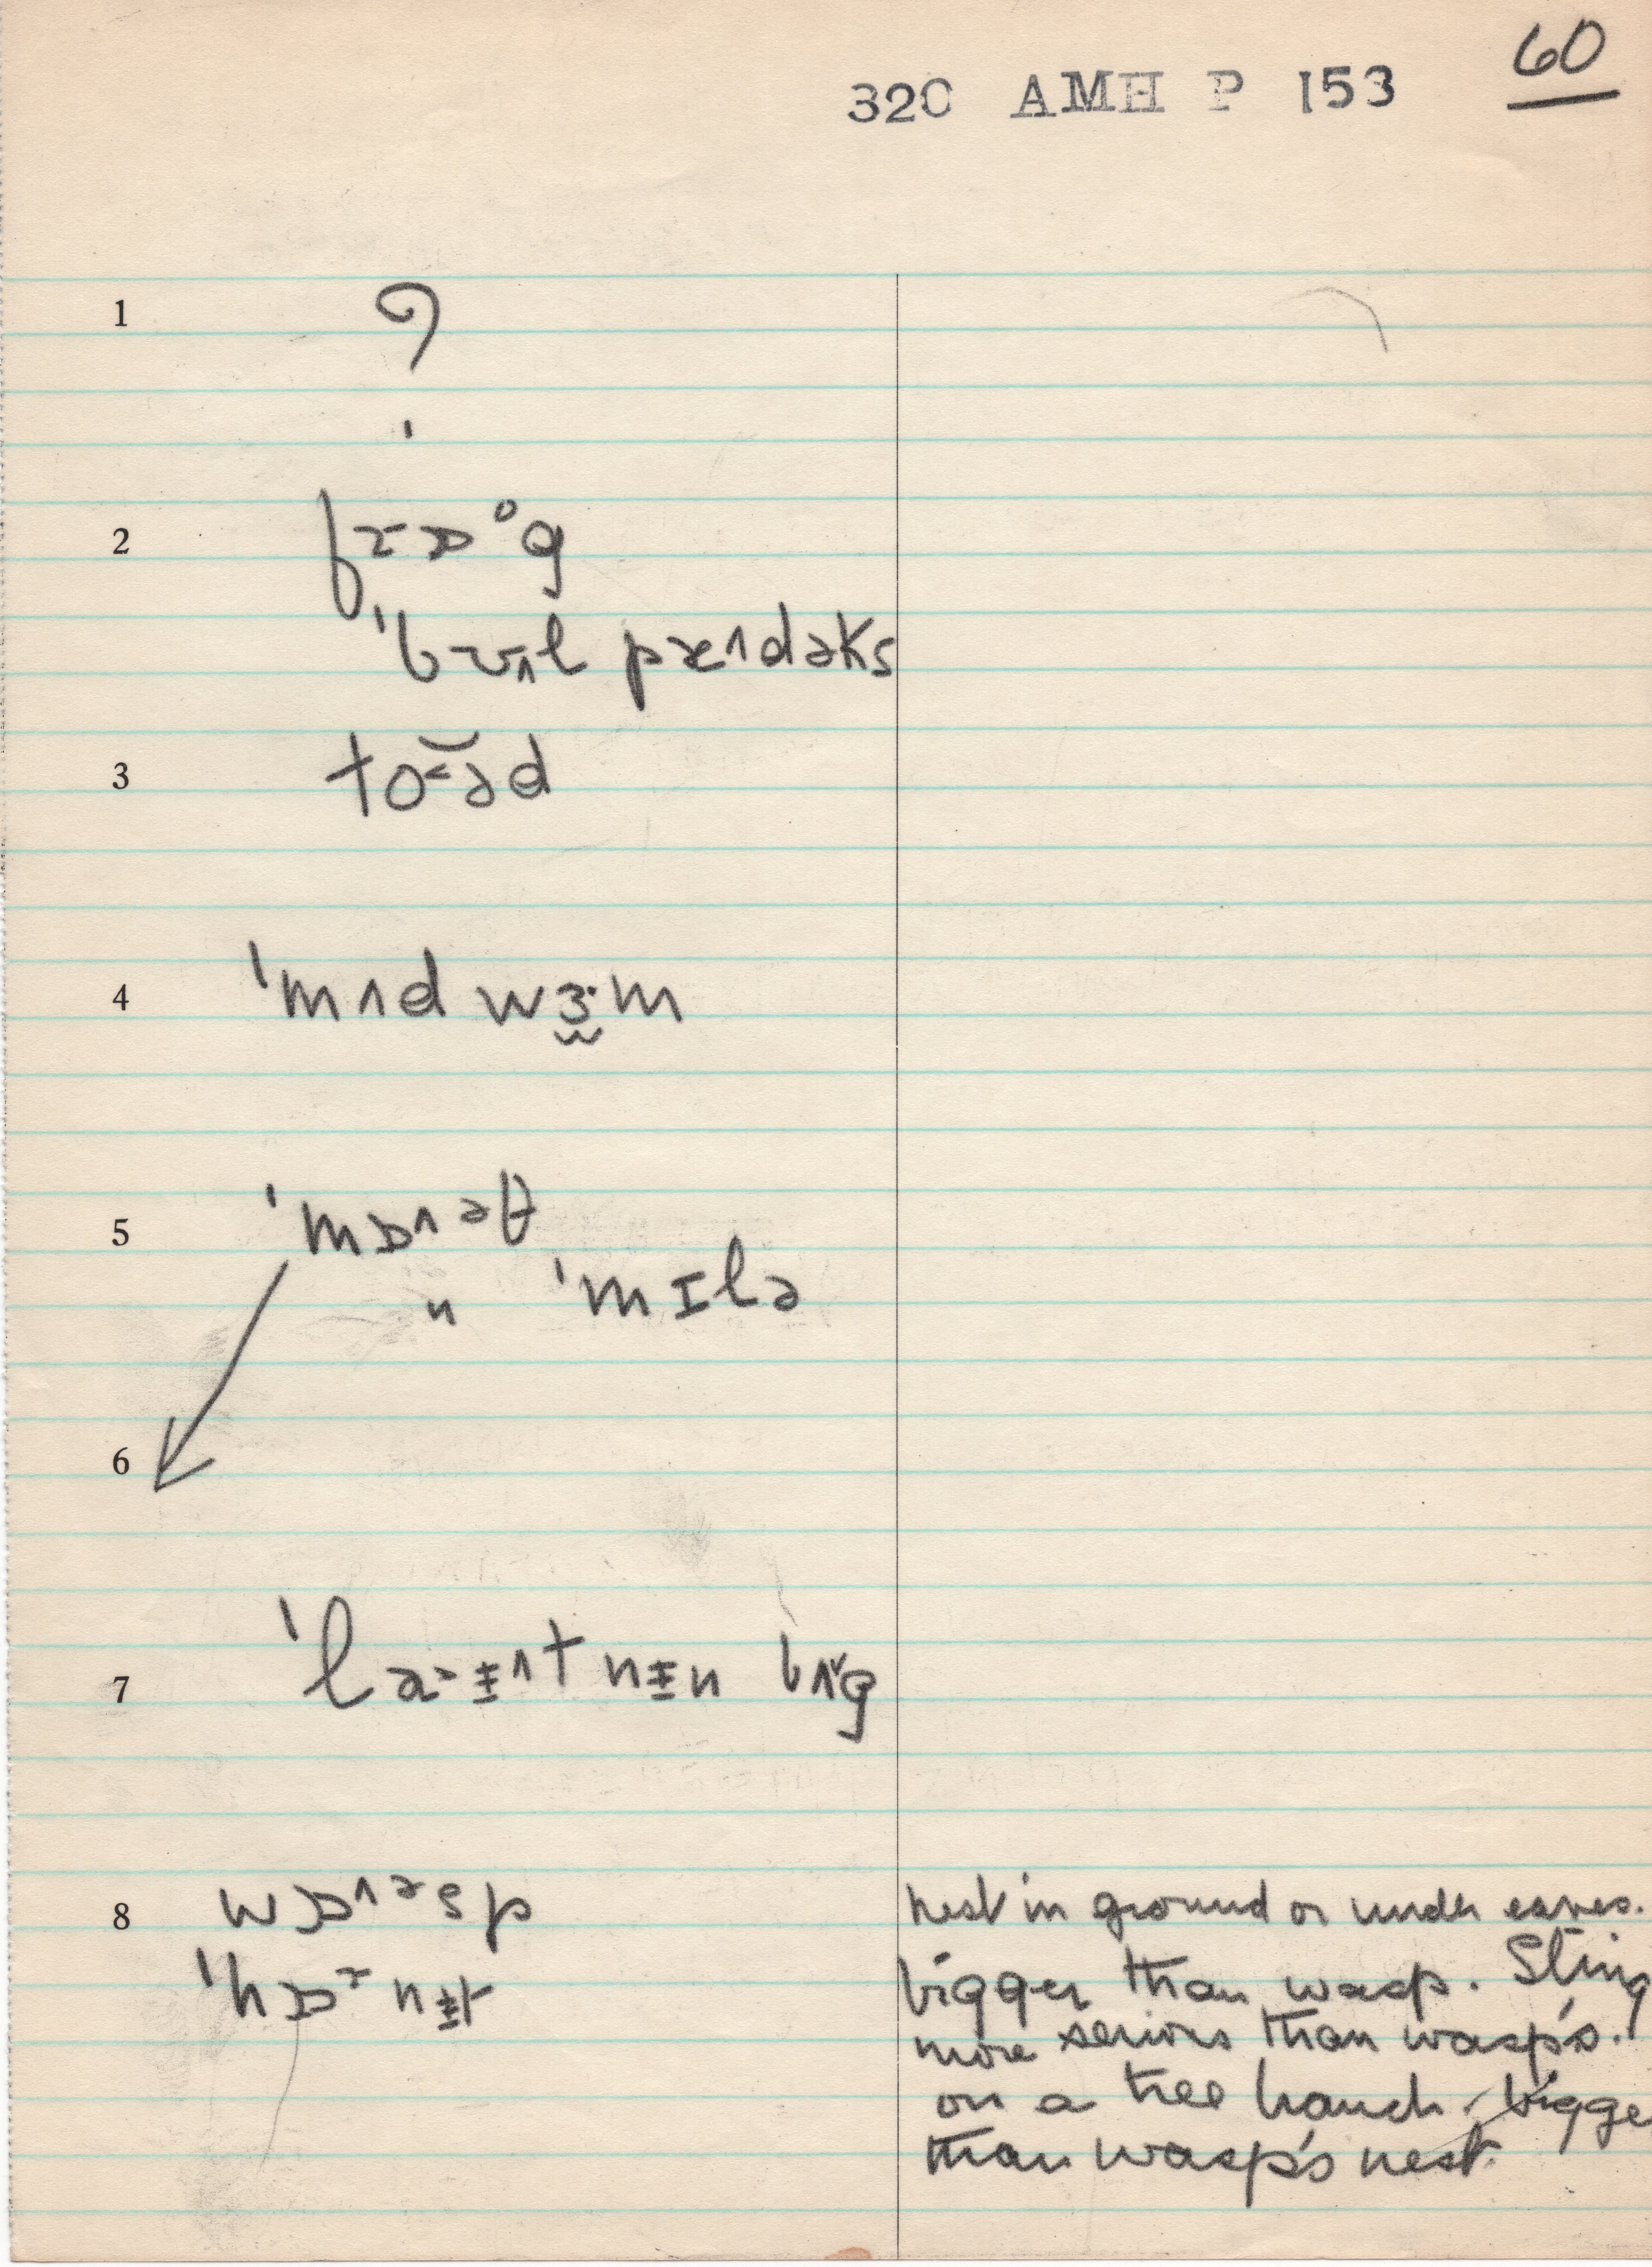 60
320 AMH P 153
1 ?
2 frɒˑᵒg
ˈbʊʌl pæʌdəks
3 toə̯d
4 ˈmʌd wɜ·m
5 ˈmɒʌəθ
" ˈmɪlə
6
7 ˈlaɨʌtnɨn bʌg
8 wɒʌəsp nest in ground or under eaves.
ˈhɒrnɨt bigger than wasp. Sting
more serious than wasp's.
on a tree branch. bigge
than wasp's nest.